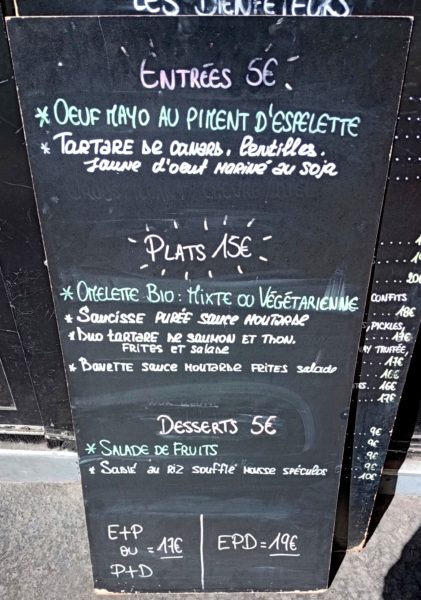 LES BIENFAITEURS
ENTRÉES 5€
* OEUF MAYO AU PIMENT D'ESPELETTE
* TARTARE DE CANARD, lentilles,
Jaune d'oeuf MARINÉ au soja
PLATS 15€
* OMELETTE BIO : MIXTE OU VÉGÉTARIENNE
* SAUCISSE PURÉE SAUCE MOUTARDE
* DUO TARTARE DE SAUMON ET THON,
FRITES ET SALADE
* BAVETTE SAUCE MOUTARDE FRITES SALADE
DESSERTS 5€
* SALADE DE FRUITS
* SABLÉ AU RIZ SOUFFLÉ MOUSSE SPÉCULOS
E+P
OU = 17€
P+D
EPD = 19€
CONFITS
18€
PICKLES,
17€
TRUFFÉE,
17€
16€
16€
17€
9€
9€
9€
9€
10€